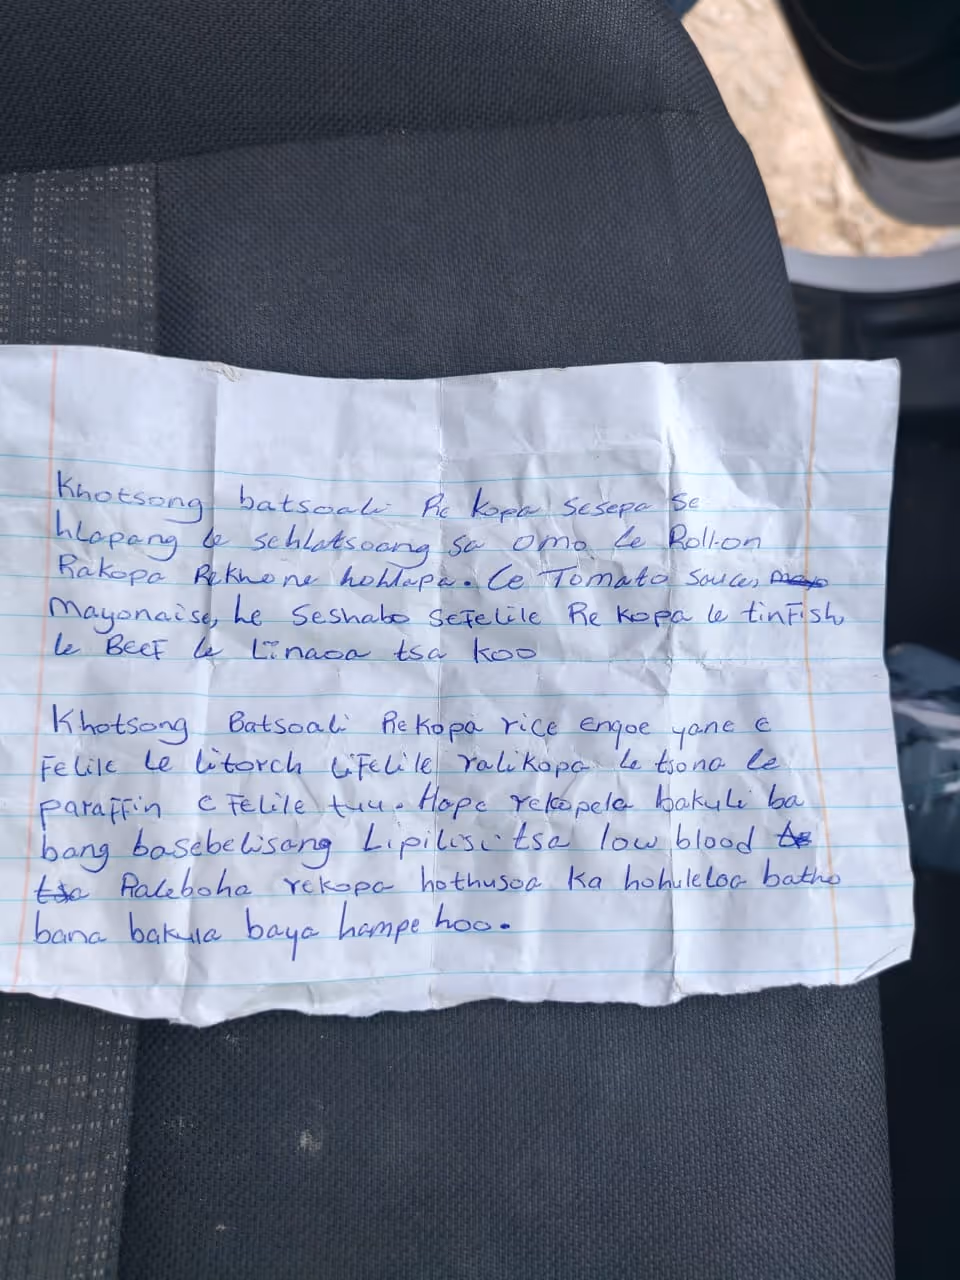 Khotsong batsoali Re kopa Sesepa Se
hlapang le sehlatsoang sa omo le Roll-on
Rakopa Rekhone hohlapa. Le Tomato Souce,
Mayonaise, he Seshabo SeFelile Re Kopa le tinFish
le BEEF le Linaoa tsa koo
Khotsong Batsoali Rekopa rice engoe yane e
Felile le litorch liFelile ralikopa le tsona le
paraffin e Felile tuu. Hape rekopela bakuli ba
bang basebelisang Lipilisi tsa low blood
Raleboha rekopa hothusoa ka hohuleloa batho
bana bakula baya hampe hoo.